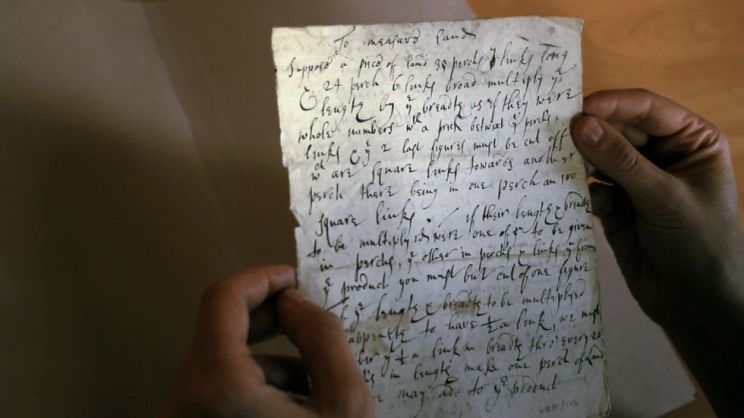 To measure Land
Suppose a peece of land 35 perch 7 links long
& 24 perch 6 links broad multiply ye
length by ye breadth as if they were
whole numbers wth a prick betwixt ye perch,
links & ye 2 last figures must be cut off
wch are square links towards another
perch there being in one perch an 100
square links. If their length & breadth
to be multiplyed were one of to be given
in perch, ye other in perch & links yn from
ye product you must but cut of one figure
ye length & breadth to be multiplyed
happeneth to have ½ a link, we must
ye ½ a link in breadth thro' every 20
in length make one perch of land
may add to ye product